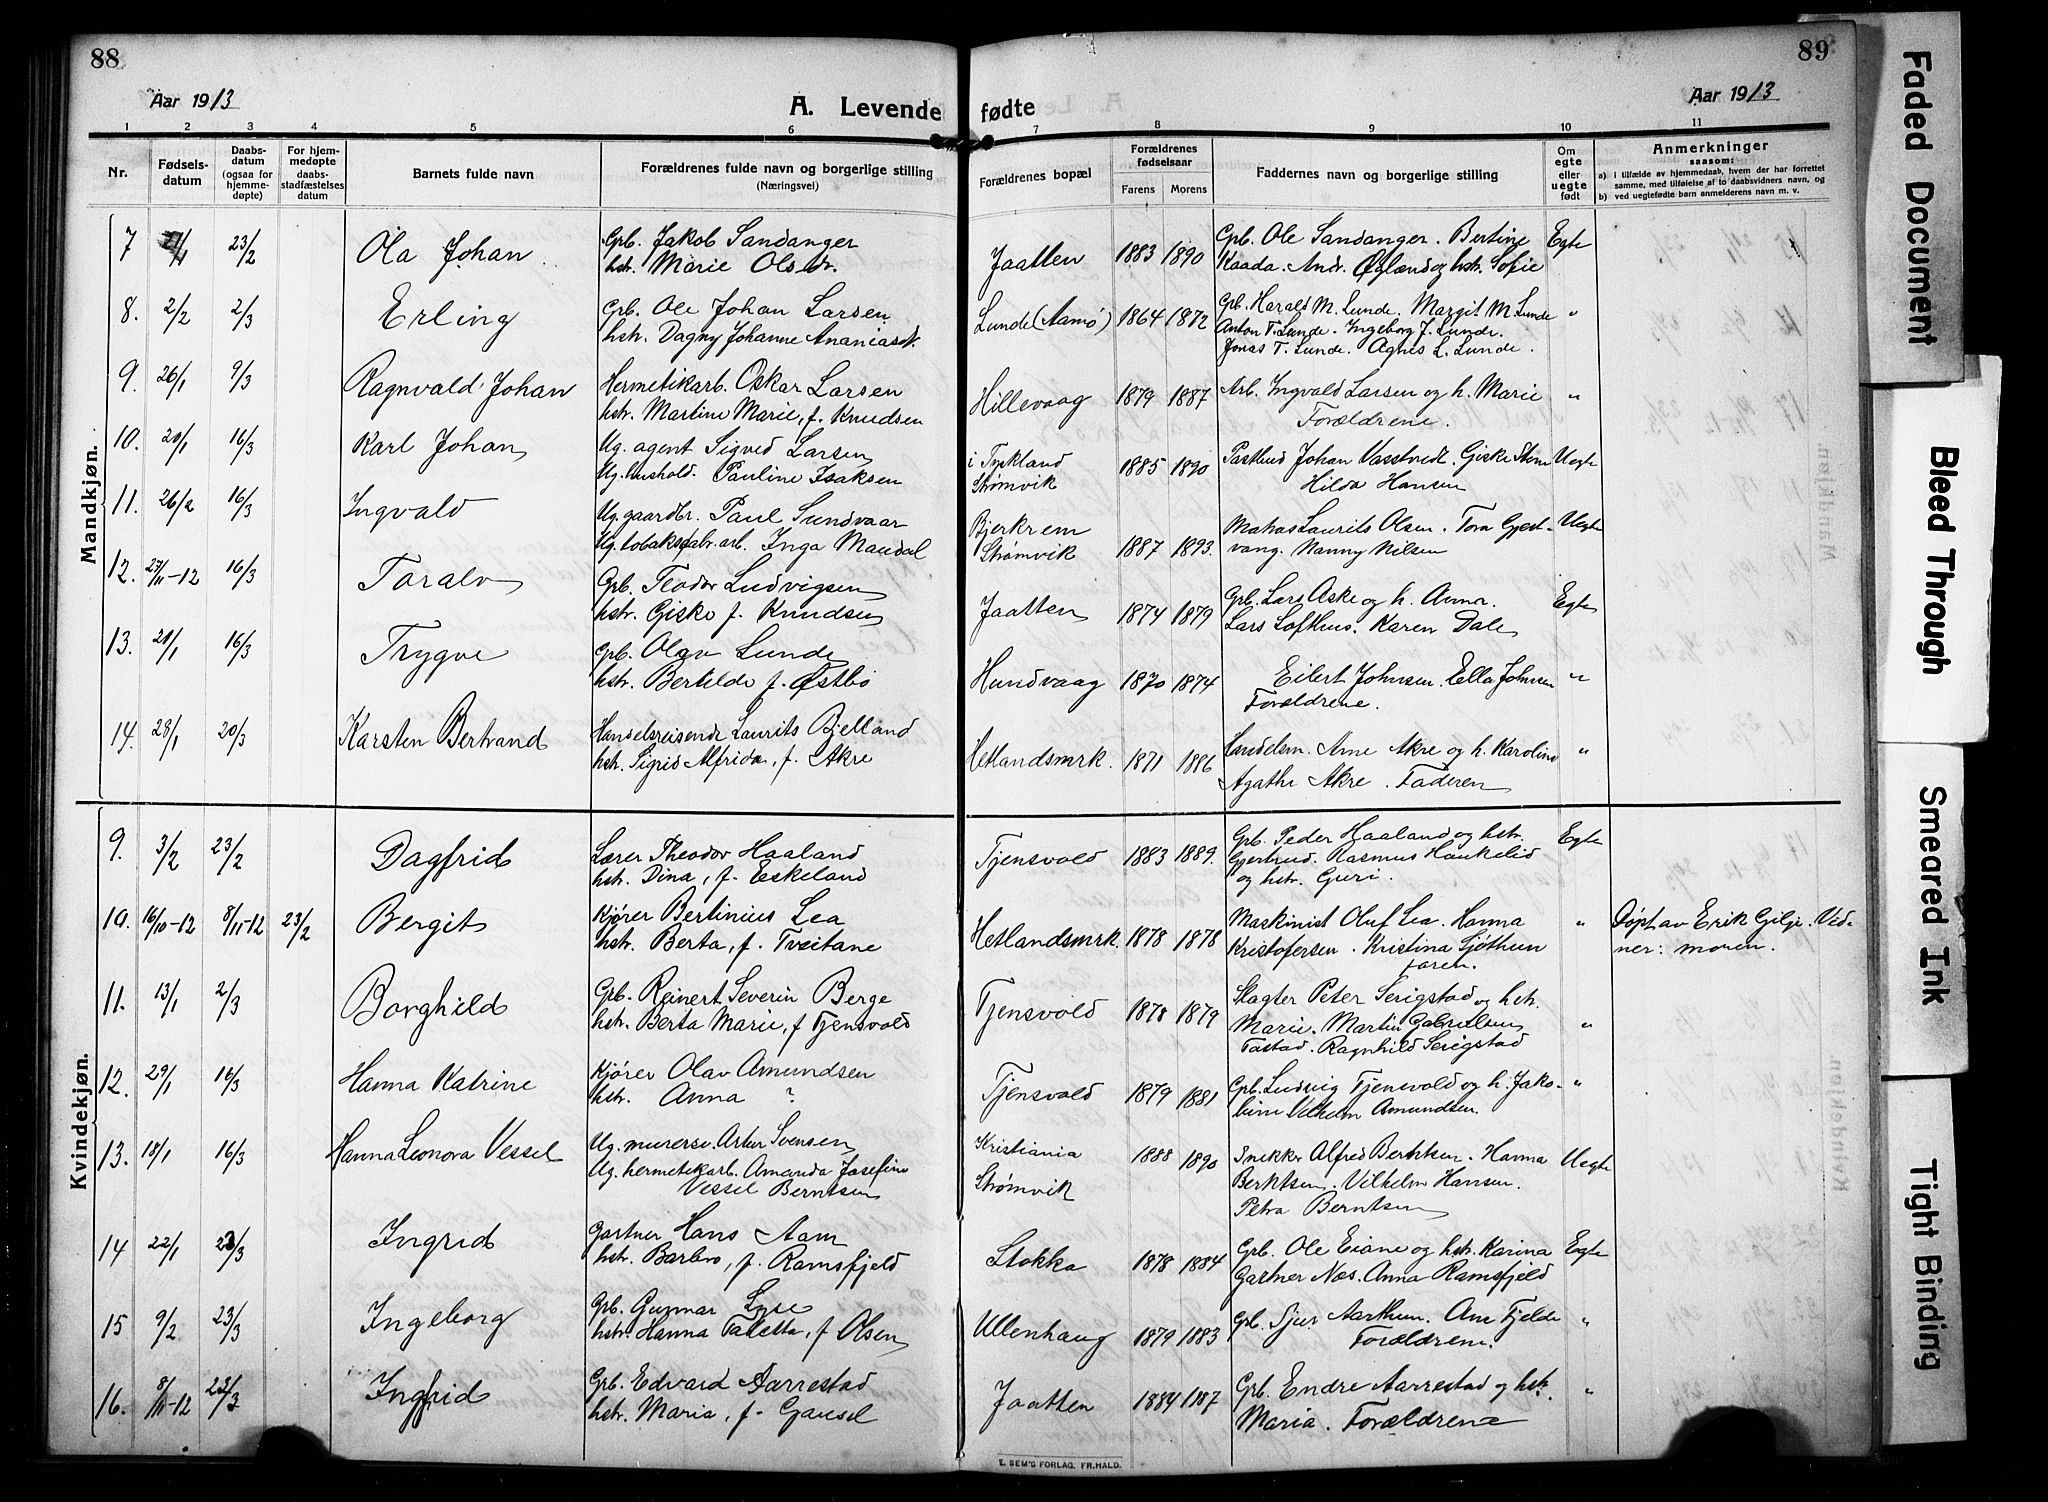 88
89
Aar 1913
A. Levende
fødte
Aar 1913
1 2 3 4 5 6 7 8 9 10 11
Nr.
Fødsels-
datum
Daabs-
datum
(ogsaa for
hjemme-
døpte)
For hjem-
medøpte
daabs-
stadfæstelses
datum
Barnets fulde navn
Forældrenes fulde navn og borgerlige stilling
(Næringsvei)
Forældrenes bopæl
Forældrenes
fødselsaar
Farens
Morens
Faddernes navn og borgerlige stilling
Om
egte
eller
uegte
født
Anmerkninger
saasom:
a) i tilfælde av hjemmedaab, hvem der har forrettet
samme, med tilføielse af to daabsvidners navn, og
b) ved uegtefødte barn anmelderens navn m. v.
Mandkjøn.
7 23/2 Ola Johan
Gpb. Jakob Sandanger
hstr. Marie Olsdr.
Jaatten 1883 1890
Gpb. Ole Sandanger. Bertine
Kaada. Andr. Øglænd og hstr. Sofie
Egte
8. 2/2 2/3 Erling
Gpb. Ole Johan Larsen
hstr. Dagny Johanne Ananiasdt.
Lunde (Aamø) 1864 1872
Gpb. Harald M. Lunde. Margit M. Lunde
Anton T. Lunde. Ingeborg J. Lunde.
Jonas T. Lunde. Agnes L. Lunde.
"
9. 26/1 9/3 Ragnvald Johan
Hermetikarb. Oskar Larsen
hstr. Martine Marie, f. Knudsen
Hillevaag 1879 1887
Arb. Ingvald Larsen og h. Marie
Forældrene.
"
10. 20/1 16/3 Karl Johan
Ug. agent Sigved Larsen
Ug. hushold. Pauline Isaksen
i Tyskland
Strømvik
1885 1890
Johan Vasstvedt. Giske
Hilda Hansen
Uegte
11. 26/2 16/3 Ingvald
Ug. gaardbr. Paul Sundvaar
Ug. tobaksfabr. arb. Inga Maudal
Bjerkrem
Strømvik
1887 1893.
Laurits Olsen. Tora Gjest-
vang. Nanny Nilsen
Uegte
12. 27/11-12 16/3 Toralv
Gpb. Teodor Ludvigsen
hstr. Giske f. Knudsen
Jaatten 1874 1879
Gpb. Lars Aske og h. Anna.
Lars Lofthus. Karen Dale
Egte
13. 21/1 16/3 Trygve
Gpb. Olav Lunde
hstr. Bertilde f. Østbø
Hundvaag 1870 1874
Eilert Johnsen. Ella Johnsen
Forældrene.
"
14. 28/1 20/3 Karsten Bertrand
Handelsreisende Laurits Bjelland
hstr. Sigrid Alfrida, f. Akre
Hetlandsmrk. 1871 1886
Handelsm. Arne Akre og h. Karoline
Agathe Akre. Faderen
"
Kvindekjøn.
9. 3/2 23/2 Dagfrid
Lærer Theodor Haaland
hstr. Dina, f. Eskeland
Tjensvold 1883 1889.
Gpb. Peder Haaland og hstr.
Gjertrud. Rasmus Haukelid
og hstr. Guri.
Egte
10. 16/10-12 8/11-12 23/2 Bergit
Kjører Bertinius Lea
hstr. Berta, f. Tveitane
Hetlandsmrk. 1878 1878
Maskinist Oluf Lea. Hanna
Kristofersen. Kristina Sjøthun
Faren.
"
Døpt av Erik Gilje. Vid-
ner: moren.
11. 13/1 2/3 Borghild
Gpb. Reinert Severin Berge
hstr. Berta Marie, f Tjensvold
Tjensvold 1878 1879
Slagter Peter Serigstad og hstr.
Marie. Martin Gabrielsen
Tastad. Ragnhild Serigstad
"
12. 29/1 16/3 Hanna Katrine
Kjører Olav Amundsen
hstr. Anna ?
Tjensvold 1879 1881
Gpb. Ludvig Tjensvold og h. Jako-
bine Vilhelm Amundsen.
"
13. 18/1 16/3 Hanna Leonora Vessel
Ug. murersv. Artur Svensen
Ug. hermetikarb. Amanda Josefine
Vessel Berntsen
Kristiania
Strømvik
1888 1890
Snekker Alfred Berntsen. Hanna
Berntsen. Vilhelm Hansen.
Petra Berntsen
Uegte
14 22/1 23/3 Ingrid
Gartner Hans Aam
hstr. Barbro, f. Ramsfjeld
Stokka 1878 1884
Gpb. Ole Eiane og hstr. Karina
Gartner Næs. Anna Ramsfjeld
Egte
15 9/2 23/3 Ingeborg
Gpb. Gunnar Lyse
hstr. Hanna Taletta, f Olsen
Ullenhaug 1879 1883
Gpb. Sjur Aarthun. Ane Fjelde
Forældrene.
"
16. 8/11-12 23/3 Ingfrid
Gpb. Edvard Aarrestad
hstr. Maria, f. Gausel
Jaatten 1884 1887
Gpb. Endre Aarrestad og hstr.
Maria. Forældrene
"
E. SEM'S FORLAG, FR.HALD.
Faded Document
Bleed Through
Smeared Ink
Tight Binding